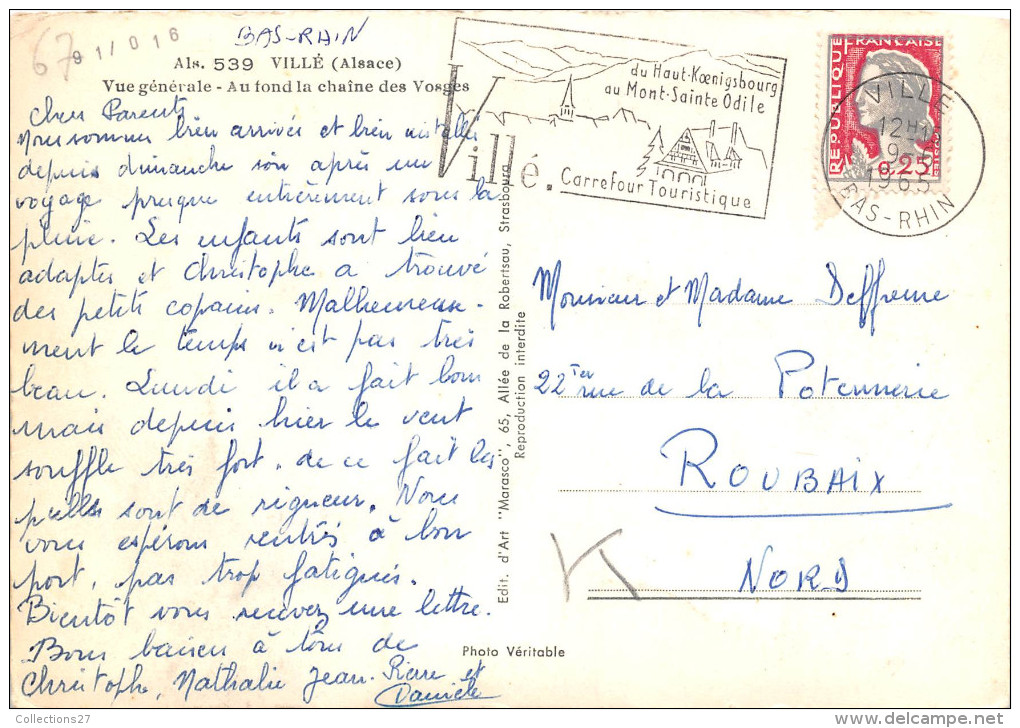 67
91/016
BAS-RHIN
Als. 539 VILLÉ (Alsace)
Vue générale - Au fond la chaîne des Vosges
Chers Parents
Nous sommes bien arrivés et bien installés
depuis dimanche soir après un
voyage presque entièrement sous la
pluie. Les enfants sont bien
adaptés et Christophe a trouvé
des petits copains. Malheureuse-
ment le temps n'est pas très
beau. Lundi il a fait bon
mais depuis hier le vent
souffle très fort. de ce fait les
pulls sont de rigueur. Nous
vous espérons rentrés à bon
port, pas trop fatigués.
Bientôt vous recevrez une lettre.
Bons baisers à tous de
Christophe, Nathalie Jean-Pierre et
Danièle
Villé.
du Haut-Kœnigsbourg
au Mont-Sainte Odile
Carrefour Touristique
REPUBLIQUE FRANÇAISE
0,25
VILLE
12H
9
1965
BAS-RHIN
Edit. d'Art "Marasco", 65, Allée de la Robertsau, Strasbourg
Reproduction interdite
Monsieur et Madame Deffrenne
22Ter rue de la Potennerie
ROUBAIX
NORD
Photo Véritable
Collections27
delcampe.net